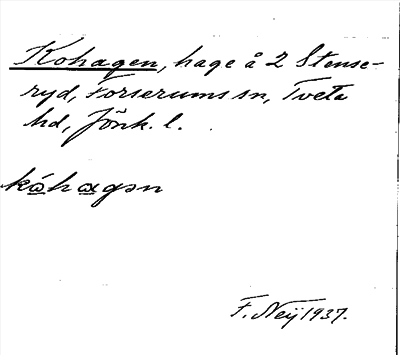 Kohagen, hage å 2 Stense-
ryd, Forserums sn, Tveta
hd, Jönk. l.
kóhagən
F. Neij 1937.